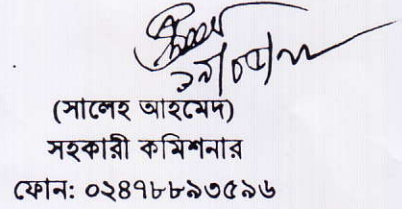 (সালেহ আহমেদ)
সহকারী কমিশনার
ফোন: ০২৪৭৮৮৯৩৫৯৬